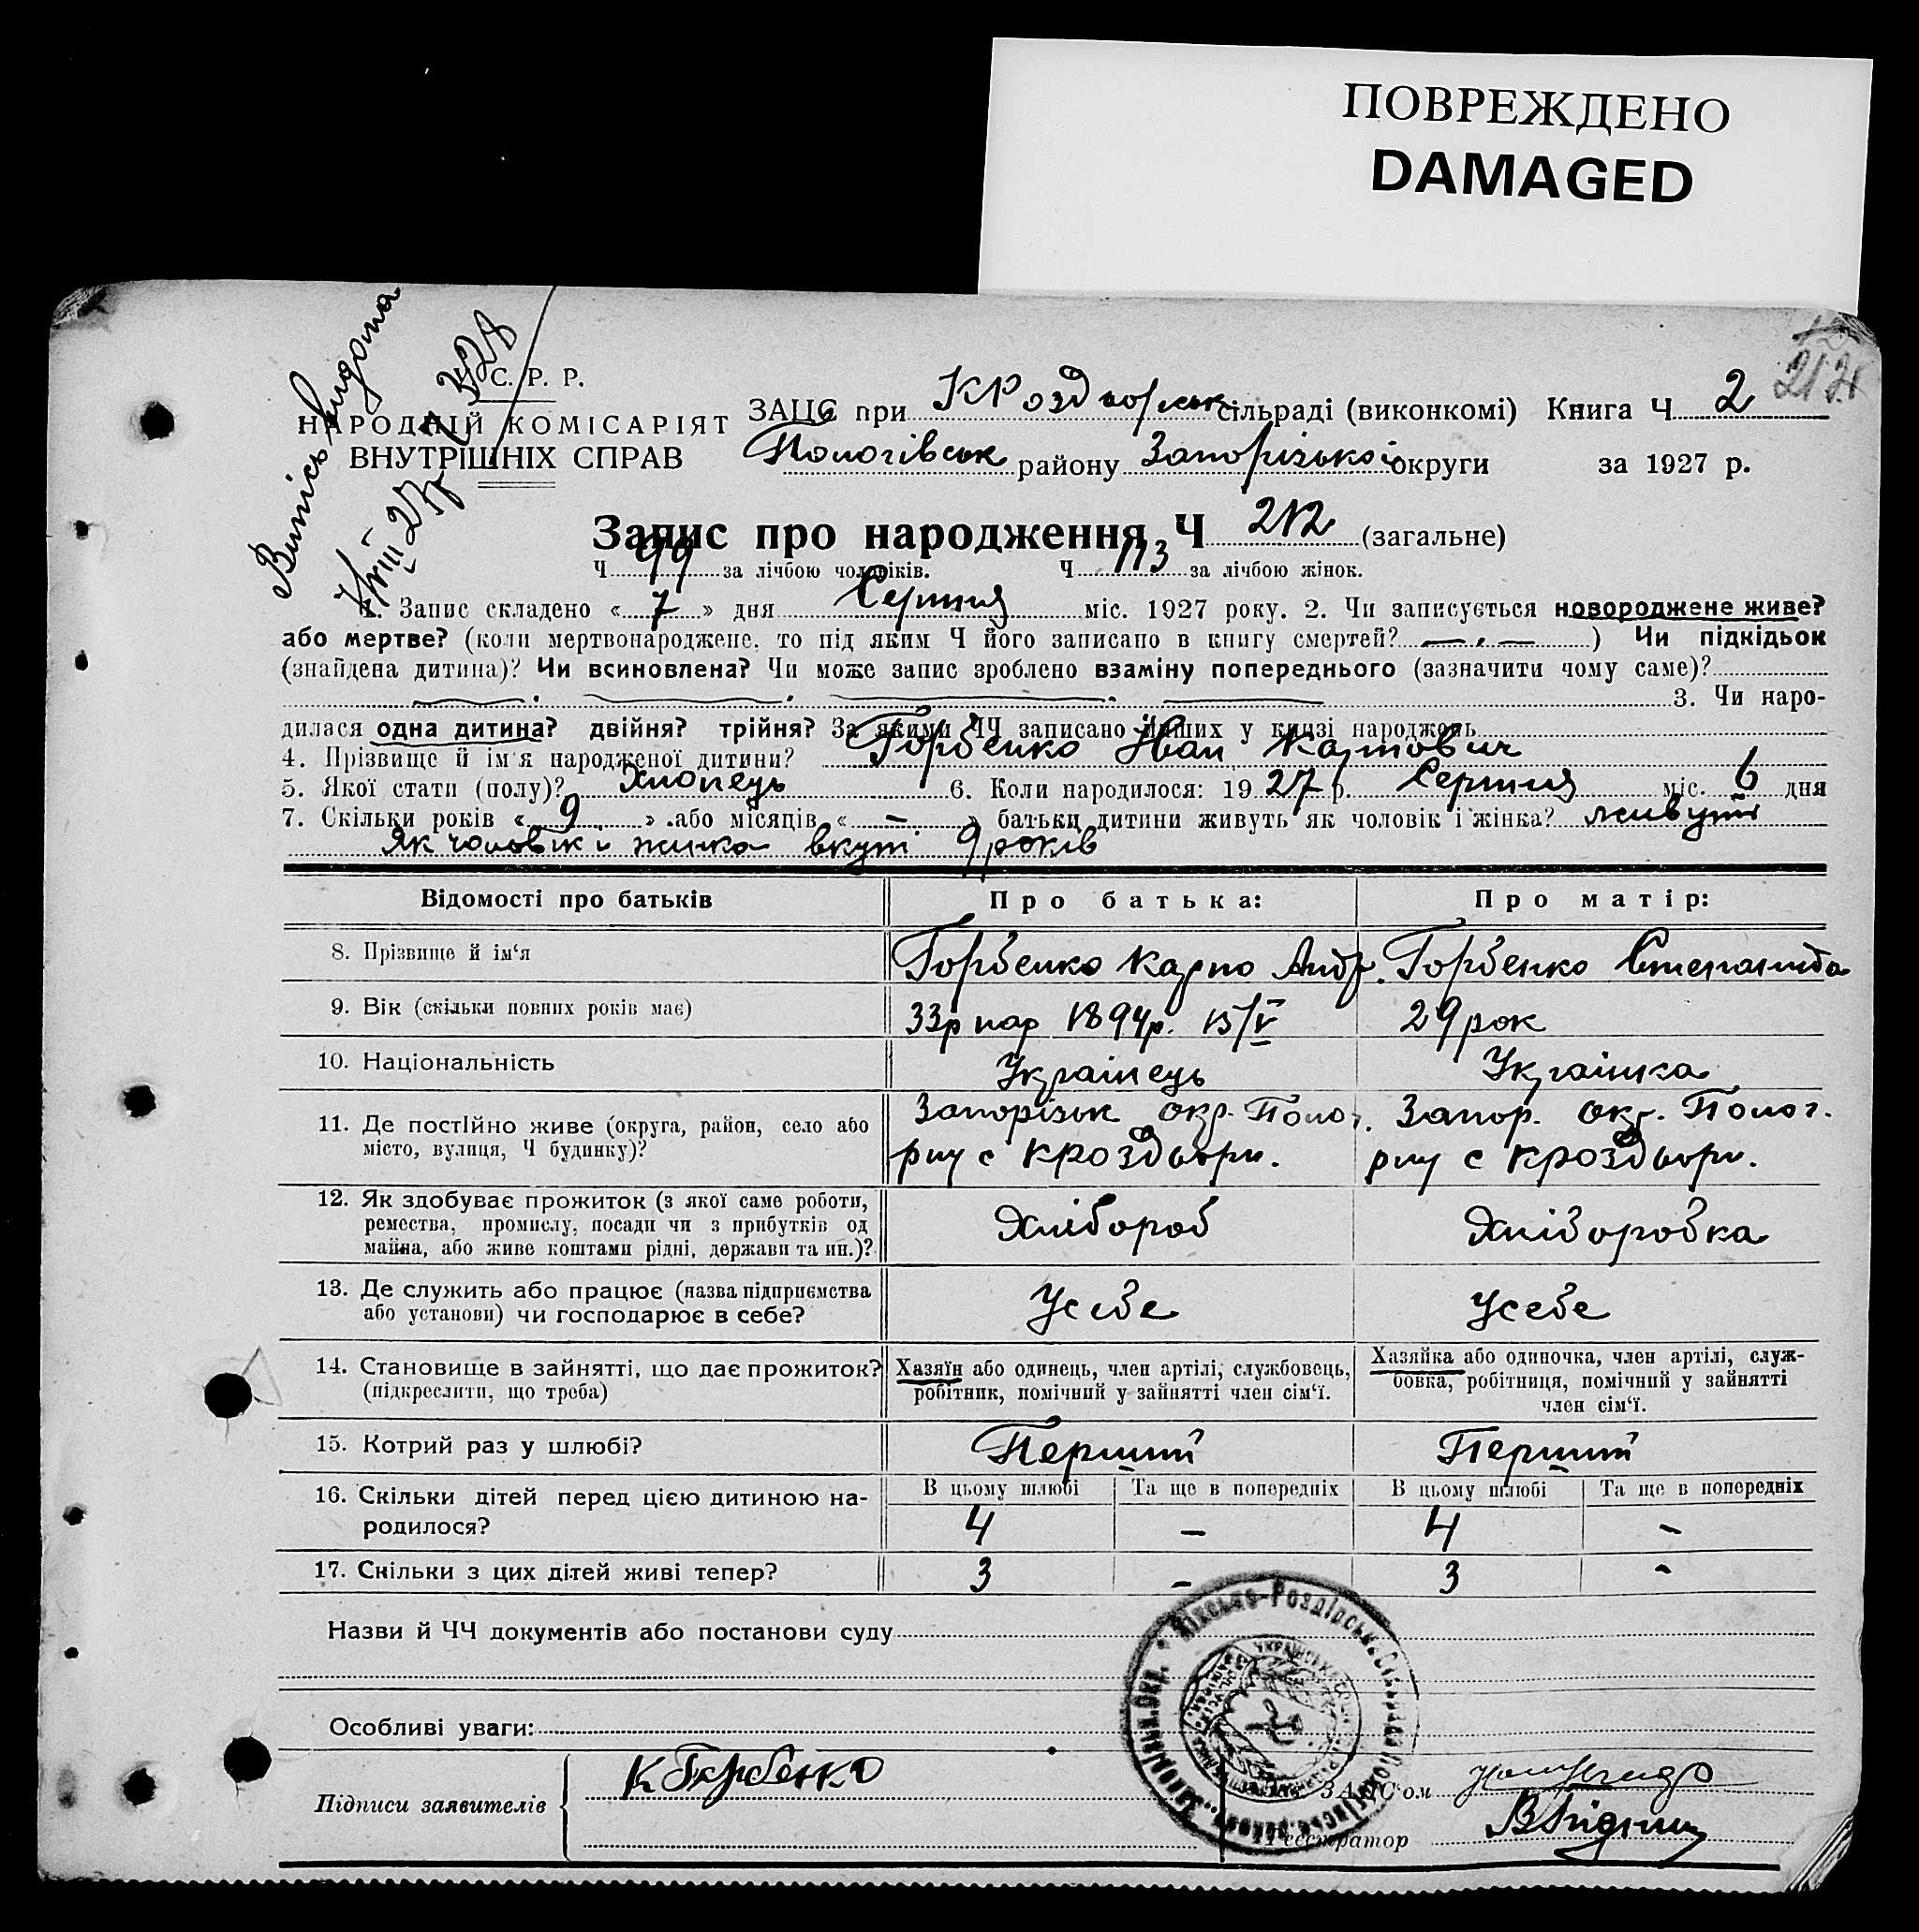 ПОВРЕЖДЕНО
DAMAGED
Випись видана
С. Р. Р.
НАРОДНІЙ КОМІСАРІЯТ
ВНУТРІШНІХ СПРАВ
ЗАЦС при КРоздорськ сільраді (виконкомі) Книга Ч 2
Пологівськ району Запорізької округи за 1927 р.
Запис про народження Ч 212 (загальне)
Ч 99 за лічбою чоловіків. Ч 113 за лічбою жінок.
1. Запис складено « 7 » дня Серпня міс. 1927 року. 2. Чи записується новороджене живе?
або мертве? (коли мертвонароджене, то під яким Ч його записано в книгу смертей? — . — ) Чи підкідьок
(знайдена дитина)? Чи всиновлена? Чи може запис зроблено взаміну попереднього (зазначити чому саме)?
3. Чи наро-
дилася одна дитина? двійня? трійня? За якими ЧЧ записано інших у книзі народжень
4. Прізвище й ім'я народженої дитини? Горбенко Иван Карпович
5. Якої стати (полу)? Хлопець 6. Коли народилося: 19 27 р. Серпня міс. 6 дня
7. Скільки років « 9 » або місяців « — » батьки дитини живуть як чоловік і жінка? живуть
Як чоловік и жинка вкупі 9 років
Відомості про батьків Про батька: Про матір:
8. Прізвище й ім'я Горбенко Карпо Андр. Горбенко Степанида
9. Вік (скільки повних років має) 33р нар 1894р. 15/V 29 рок
10. Національність Українець Українка
11. Де постійно живе (округа, район, село або місто, вулиця, Ч будинку)? Запорізьк окр. Полог. Запор. окр. Полог.
рну с КРоздори. рну с КРоздори.
12. Як здобуває прожиток (з якої саме роботи, ремества, промислу, посади чи з прибутків од майна, або живе коштами рідні, держави та ин.)? Хлібороб Хліборобка
13. Де служить або працює (назва підприємства або установи) чи господарює в себе? Усебе Усебе
14. Становище в зайнятті, що дає прожиток? (підкреслити, що треба) Хазяїн або одинець, член артілі, службовець, робітник, помічний у зайнятті член сім'ї. Хазяйка або одиночка, член артілі, служ-бовка, робітниця, помічний у зайнятті член сім'ї.
15. Котрий раз у шлюбі? Перший Перший
16. Скільки дітей перед цією дитиною на-родилося? В цьому шлюбі Та ще в попередніх В цьому шлюбі Та ще в попередніх
4 – 4 –
17. Скільки з цих дітей живі тепер? 3 – 3 –
Назви й ЧЧ документів або постанови суду
Особливі уваги:
Підписи заявителів К Горбенко
ЗАЦС'ом
Реєстратор